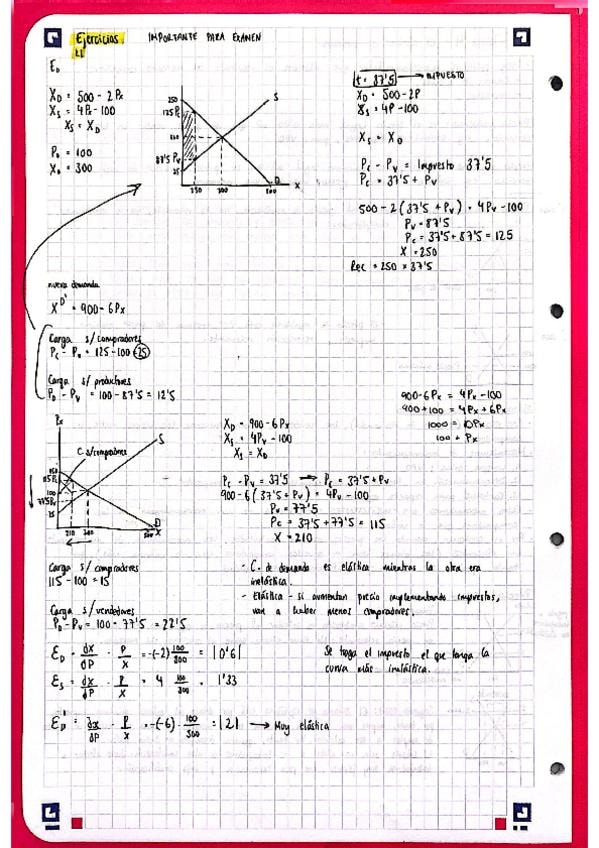 Ejercicios. IMPORTANTE PARA EXAMEN
E₀
X_D = 500 - 2Px
X_S = 4Px - 100
X_S = X_D
P₀ = 100
X₀ = 300
250
125 Pc
100
87'5 Pv
25
S
D
X
250 300
t = 37'5 → IMPUESTO
X_D = 500 - 2P
X_S = 4P - 100
X_S = X_D
Pc - Pv = Impuesto 37'5
Pc = 37'5 + Pv
500 - 2(37'5 + Pv) = 4Pv - 100
Pv = 87'5
Pc = 37'5 + 87'5 = 125
X = 250
Rec = 250 x 37'5
nueva demanda
X^D' = 900 - 6Px
Carga s/compradores
Pc - P₀ = 125 - 100 = 25
Carga s/ productores
P₀ - Pv = 100 - 87'5 = 12'5
900 - 6Px = 4Px - 100
900 + 100 = 4Px + 6Px
1000 = 10Px
100 = Px
Px
S
C. s/compradores
150
115 Pc
100
77'5 Pv
25
D
X
210 300
X_D = 900 - 6Px
X_S = 4Pv - 100
X_S = X_D
Pc - Pv = 37'5 → Pc = 37'5 + Pv
900 - 6(37'5 + Pv) = 4Pv - 100
Pv = 77'5
Pc = 37'5 + 77'5 = 115
X = 210
Carga s/ compradores
115 - 100 = 15
Carga s/ vendedores
P₀ - Pv = 100 - 77'5 = 22'5
- C. de demanda es elástica mientras la otra era
inelástica.
- Elástica - si aumentan precio implementando impuestos,
van a haber menos compradores.
E_D = ∂x/∂P · P/X = (-2) 100/300 = |0'6|
E_S = ∂x/∂P · P/X = 4 100/300 = 1'33
Se traga el impuesto el que tenga la
curva más inelástica.
E_D' = ∂x/∂P · P/X = (-6) · 100/300 = |2| → Muy elástica